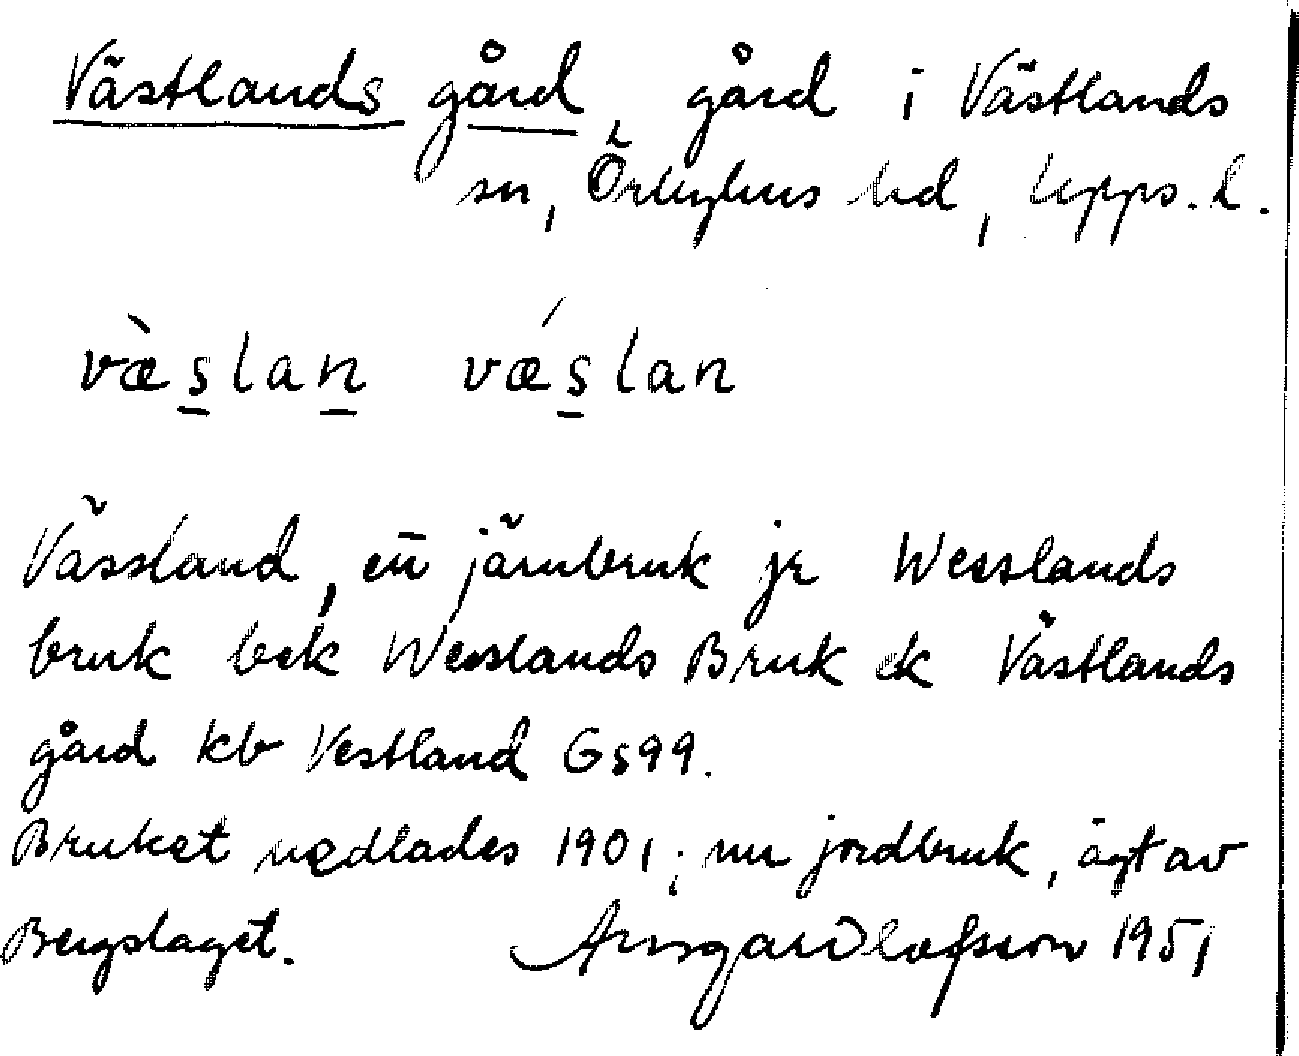 Västlands gård, gård i Västlands
sn, Örbyhus hd, Upps. l.
væ̀slan vǽslan
Västland, en järnbruk jr Wesslands
bruk bek Wesslands Bruk ek Västlands
gård kb Vestland Gs99.
Bruket nedlades 1901; nu jordbruk, ägt av
Bergslaget. Ansgar Olofsson 1951